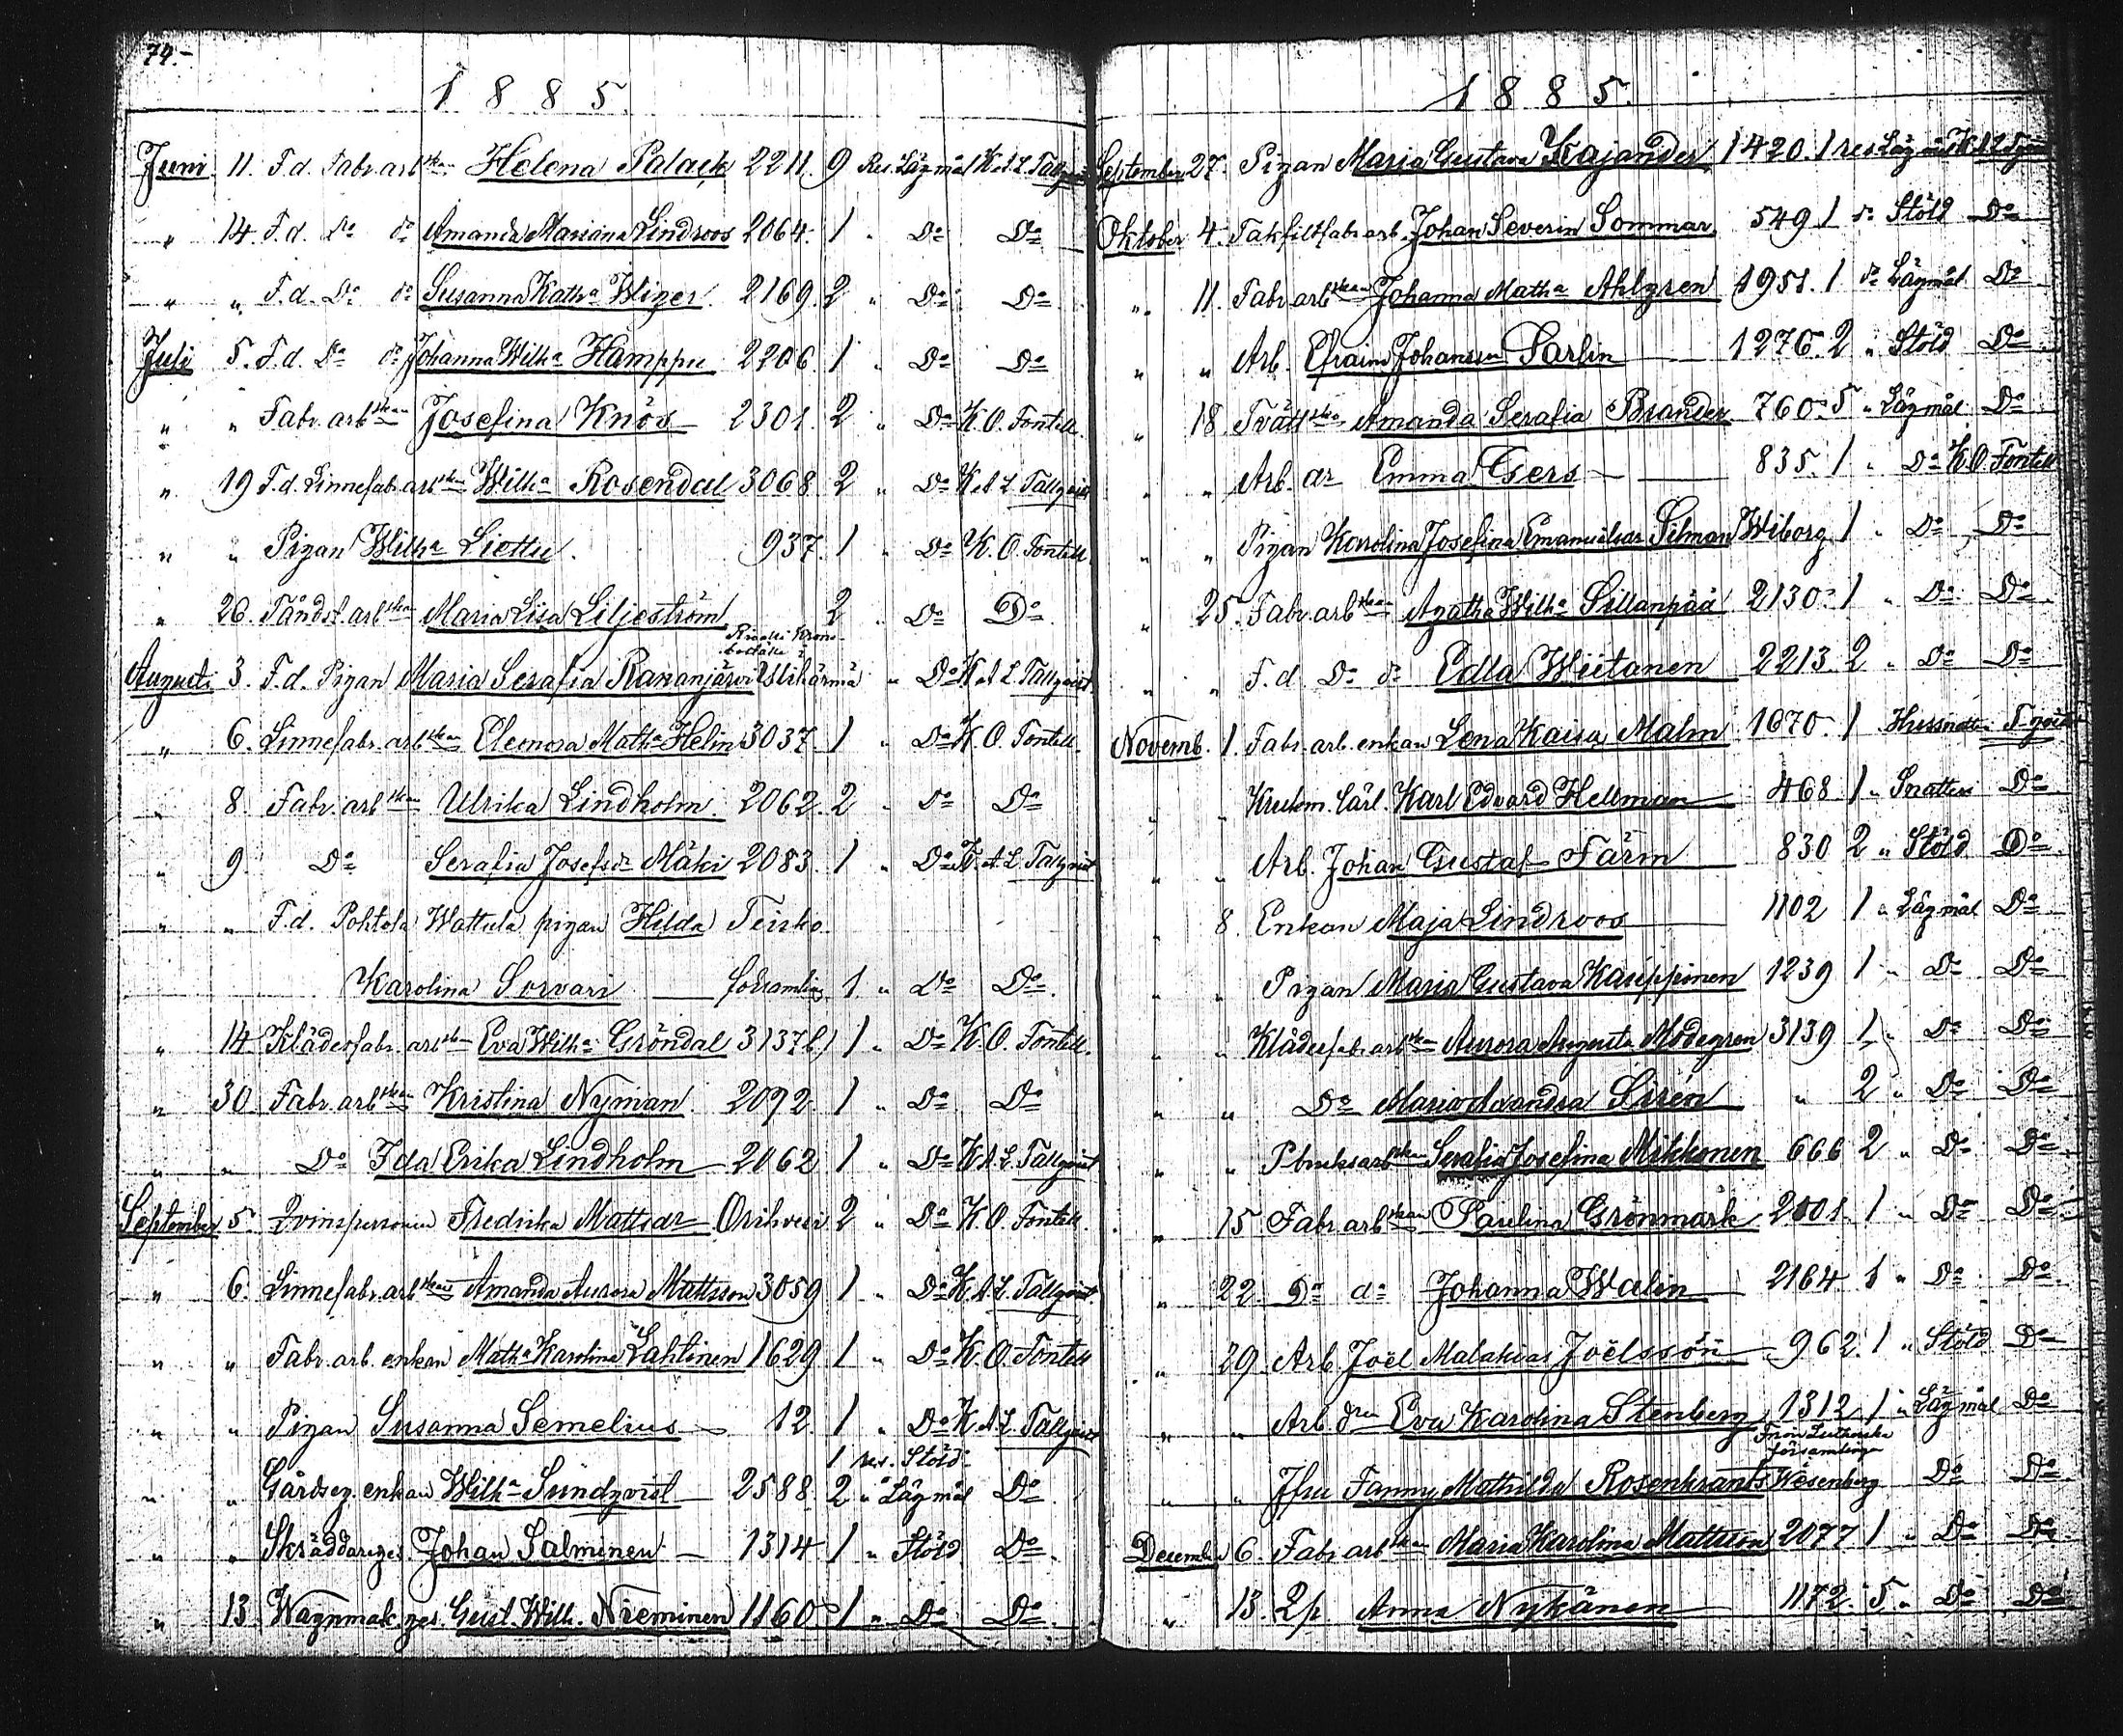 74.-
1885.
Juni 11. F.d. Fabr. arbskan Helena Palack 2211. 9 Res. Lägmål K.A.L. Tallqvist
" 14. F.d. Do do Amanda Mariana Lindroos 2064. 1 " Do Do
" " F.d. Do do Susanna Katha Wiger 2169. 2 " Do Do
Juli 5. F.d. Do do Johanna Wilha Hamppu 2206. 1 " Do Do
" " Fabr. arbskan Josefina Knös 2301. 2 " Do K.O. Fontell.
" 19 F.d. Linnefabr. arbskan Wilha Rosendal 3068. 2 " Do K.A.L. Tallqvist
" " Pigan Wilha Liettu 937. 1 " Do K.O. Fontell
" 26. Tändst. arbskan Maria Lisa Liljeström 2 " Do Do
Augusti 3. F.d. Pigan Maria Serafia Rananjärvi Ylihärmä " Do K.A.L. Tallqvist.
" 6. Linnefabr. arbskan Eleonora Matha Helin 3037. 1 " Do K.O. Fontell.
" 8. Fabr. arbskan Ulrika Lindholm. 2062. 2 " Do Do
" 9. Do Serafia Josefsdr Mäki 2083. 1 " Do K.A.L. Tallqvist
" " F.d. Pohtola Wattula pigan Hilda Teisko
Karolina Sorvari församling 1 " Do Do.
" 14. Klädesfabr. arbskan Eva Wilha Gröndal 3137b) 1 " Do K.O. Fontell.
" 30 Fabr. arbskan Kristina Nyman 2092. 1 " Do Do
" " Do Ida Erika Lindholm 2062 1 " Do K.A.L. Tallqvist
September 5. Qvinspersonen Fredrika Mattsdr Orihvesi 2 " Do K.O. Fontell.
" 6. Linnefabr. arbskan Amanda Aurora Mattsson 3059 1 " Do K.A.L. Tallqvist.
" " Fabr. arb. enkan Matha Karolina Lahtinen 1629 1 " Do K.O. Fontell
" " Pigan Susanna Semelius 12. 1 " Do K.A.L. Tallqvist
1 res. Stöld
" " Gårdseg. enkan Wilha Sundqvist 2588. 2 " Lägmål Do
" " Skräddareges. Johan Salminen 1314 1 " Stöld Do.
" 13. Wagnmak. ges. Gust. Wilh. Nieminen 1160 1 " Do Do
1885.
September 27. Pigan Maria Gustava Kajander 1420. 1 res Lägmål
Oktober 4. Takfiltfabr. arb. Johan Severin Sommar 549 1 do Stöld Do
" 11. Fabr. arbskan Johanna Matha Ahlgren 1951. 1 do Lägmål Do
" " Arb. Efraim Johansson Sarlin 1276. 2 " Stöld Do
" 18. Tvättskan Amanda Serafia Brander 760. 5 " Lägmål Do
" " Arb. dr Emma Gers 835. 1 " Do K.O. Fontell
" " Pigan Karolina Josefina Emanuelsdr Silman Wiborg 1 " Do Do
" 25. Fabr. arbskan Agatha Wilha Sillanpää 2130. 1 " Do Do
" " F.d Do do Edla Wiitanen 2213. 2 " Do Do
Novemb. 1. Fabr. arb. enkan Lena Kaisa Malm 1670. 1
" " Krukm. lärl. Karl Edvard Hellman 468. 1 " Snatteri Do
" " Arb. Johan Gustaf Färm 830 2 " Stöld Do
" 8. Enkan Maja Lindroos 1102 1 " Lägmål Do
" " Pigan Maria Gustava Kauppinen 1239 1 " Do Do
" " Klädesfabr. arbskan Aurora Augusta Modegren 3139 1 " Do Do
" " Do Maria Amanda Sirén " 2 " Do Do
" " P. bruksarbskan Serafia Josefina Mikkonen 666 2 " Do Do
" 15 Fabr. arbskan Paulina Grönmark 2001. 1 " Do Do
" 22. Do do Johanna Walin 2164 1 " Do Do
" 29. Arb. Joël Malakias Joëlsson 962. 1 " Stöld Do
" " Arb. dn Eva Karolina Stenberg 1312. 1 " Lägmål Do
Från Lutherska församlingen
" " Jfru Fanny Mathilda Rosenkrants Wesenberg Do Do
December 6. Fabr. arbskan Maria Karolina Mattsson 2077 1 " Do Do
" 13. Qp. Anna Nykänen 1172. 5. " Do Do